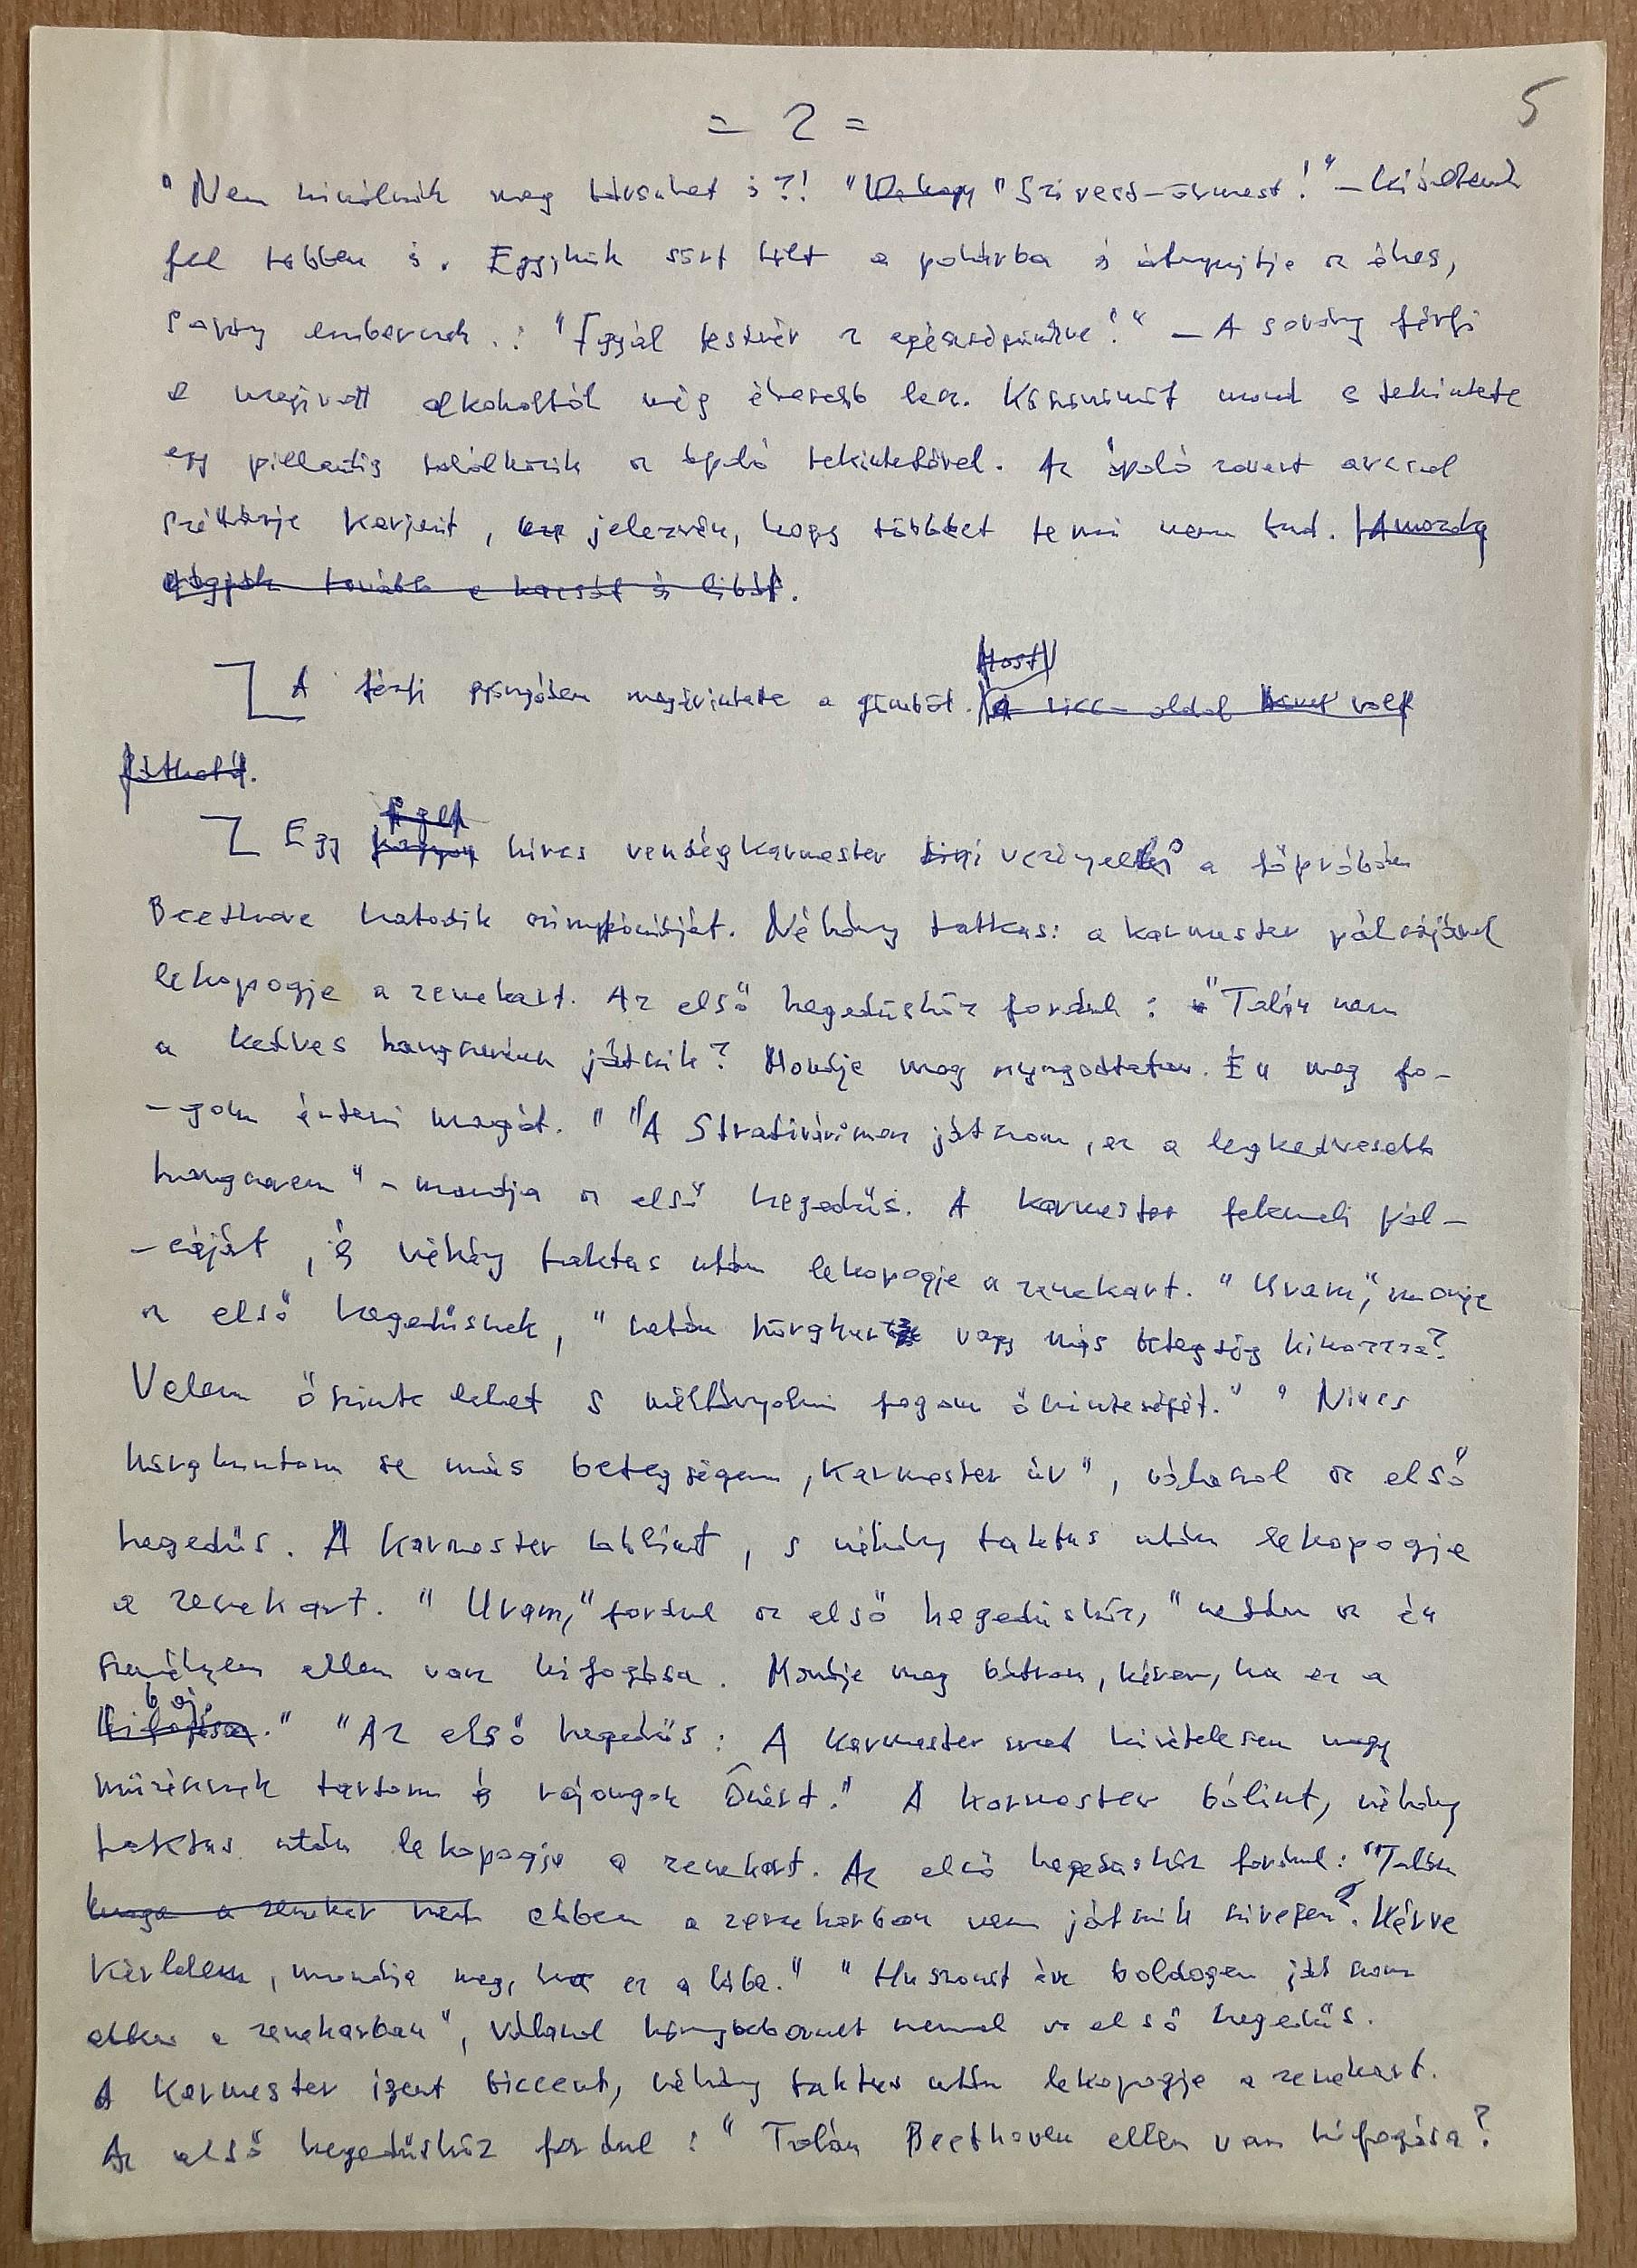 5
= 2 =
"Nem kinálnák meg társukat is?! " "Szivest-örömest!" – kiáltanak
fel többen is. Egyikük sört tölt a pohárba és átnyujtja az éhes,
sovány embernek.: "Igyál testvér az egészségünkre!" – A sovány férfi
a megivott alkoholtól még éhesebb lesz. Köszönöt mond s tekintete
egy pillantig találkozik az ápoló tekintetével. Az ápoló zavart arccal
széttárja karjait, jelezvén, hogy többet tenni nem tud.
tovább a kacsát és libát.
A férfi gyöngéden megérintette a gömböt. Most
Egy híres vendégkarmester vezényelte a főpróbán
Beethove hatodik szimfóniáját. Néhány taktus: a karmester pálcájával
lekopogja a zenekart. Az első hegedűshöz fordul: "Talán nem
a kedves hangszerén játszik? Mondja meg nyugodtan. Én meg fo-
-gom érteni magát." "A Stradivárimon játszom, ez a legkedvesebb
hangszerem" – mondja az első hegedűs. A karmester felemeli pál-
-cáját, és néhány taktus után lekopogja a zenekart. "Uram," mondja
az első hegedűsnek, " hörghurut vagy más betegség kínozza?
Velem őszinte lehet s méltányolni fogom őszinteségét." "Nincs
hörghurutom se más betegségem, karmester úr", válaszol az első
hegedűs. A karmester bólint, s néhány taktus után lekopogja
a zenekart. "Uram," fordul az első hegedűshöz, "netán az én
személyem ellen van kifogása. Mondja meg bátran, kérem, ha ez a
baj
kifogása." "Az első hegedűs: A karmester urat kivételesen nagy
művésznek tartom és rajongok Önért." A karmester bólint, néhány
taktus után lekopogja a zenekart. Az első hegedűshöz fordul: "Talán
a zenekar nem ebben a zenekarban nem játszik szívesen? Kérve
kérlelem, mondja meg, ha ez a hiba." "Huszonöt éve boldogan játszom
ebben a zenekarban", válaszol könybeborult szemmel az első hegedűs.
A karmester igent biccent, néhány taktus után lekopogja a zenekart.
Az első hegedűshöz fordul: "Talán Beethoven ellen van kifogása?